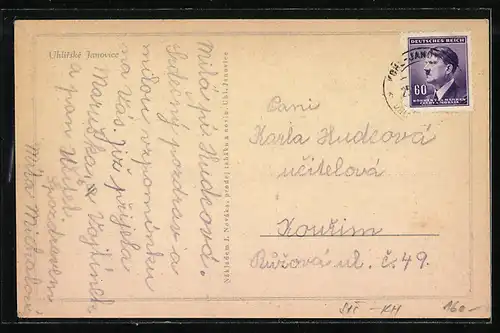 Uhlířské Janovice
Milá pří Hudcová.
Srdečný pozdrav a
milou vzpomínku
na Vás. Již přijela
Maruška, Vojtínek
a pan
S pozdravem
Míla
Nákladem J. Nováka, prodej tabáku a novin, Uhl. Janovice
DEUTSCHES REICH
60
BÖHMEN u. MÄHREN
ČECHY a MORAVA
KOHL-JANO
Paní
Karla Hudcová
učitelová
Kouřim
Růžová ul. č. 49.
Stč - KH
160-